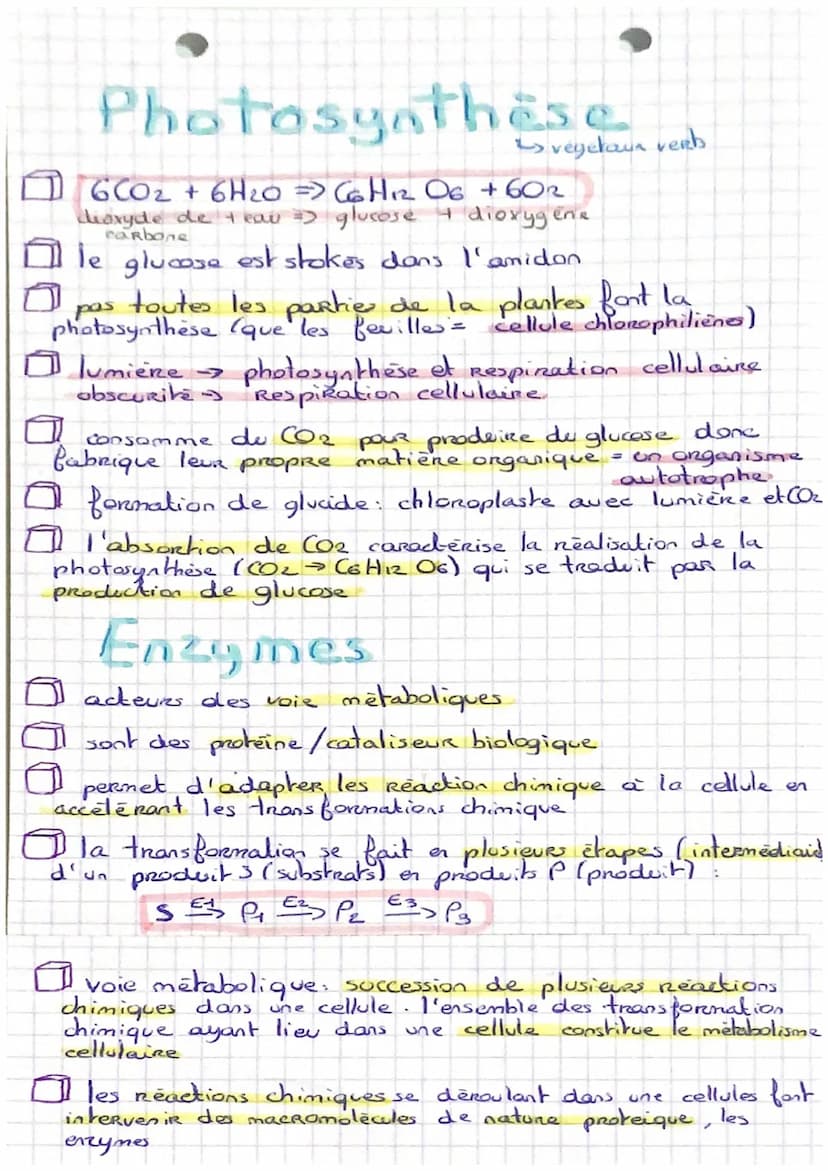 Photosynthèse
↳ végétaux verb
6CO2 + 6H2O => C6H12O6 + 6O2
dioxyde de + eau => glucose + dioxygène
carbone
le glucose est stokés dans l'amidon
pas toutes les partie de la plantes font la
photosynthèse (que les feuilles = cellule chlorophiliènes)
lumière → photosynthèse et Respiration cellulaire
obscurité → Respiration cellulaire
consomme du CO2 pour prodeire du glucose donc
fabrique leur propre matière organique = un organisme
autotrophe
formation de glucide : chloroplaste avec lumière et CO2
l'absortion de CO2 caractérise la réalisation de la
photosynthèse (CO2 → C6H12O6) qui se traduit par la
production de glucose
Enzymes
acteurs des voie métaboliques
sont des protéine / cataliseur biologique
permet d'adapter les réaction chimique à la cellule en
accélérant les transformations chimique
la transformation se fait en plusieurs étapes (intermédiaid
d'un produit S (substrats) en produits P (produit) :
S E1→ P1 E2→ P2 E3→ P3
voie métabolique : succession de plusieurs réactions
chimiques dans une cellule . l'ensemble des transformation
chimique ayant lieu dans une cellule constitue le métabolisme
cellulaire
les réactions chimiques se déroulant dans une cellules font
intervenir des macromolécules de nature proteique , les
enzymes